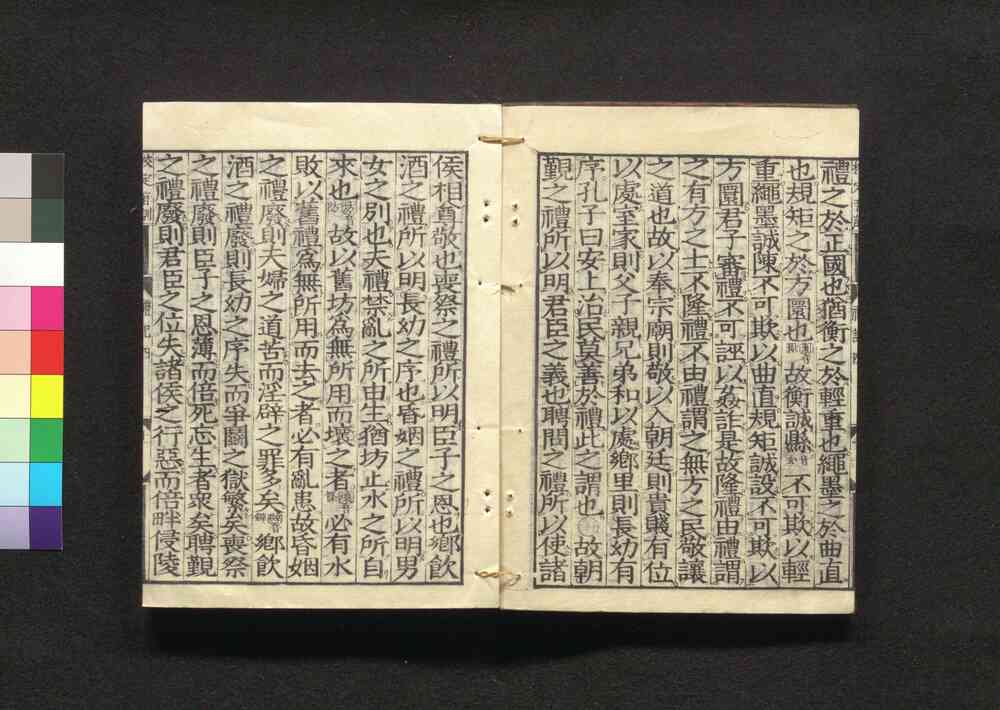 禮之於正國也猶衡之於輕重也繩墨之於曲直
也規矩之於方圜也故衡誠縣不可欺以輕
重繩墨誠陳不可欺以曲直規矩誠設不可欺以
方圜君子審禮不可誣以姦詐是故隆禮由禮謂
之有方之士不隆禮不由禮謂之無方之民敬讓
之道也故以奉宗廟則敬以入朝廷則貴賤有位
以處室家則父子親兄弟和以處鄉里則長幼有
序孔子曰安上治民莫善於禮此之謂也故朝
覲之禮所以明君臣之義也聘問之禮所以使諸
侯相尊敬也喪祭之禮所以明臣子之恩也鄉飲
酒之禮所以明長幼之序也昏姻之禮所以明男
女之別也夫禮禁亂之所由生猶坊止水之所自
來也故以舊坊為無所用而壞之者必有水
敗以舊禮為無所用而去之者必有亂患故昏姻
之禮廢則夫婦之道苦而淫辟之罪多矣鄉飲
酒之禮廢則長幼之序失而爭鬭之獄繁矣喪祭
之禮廢則臣子之恩薄而倍死忘生者衆矣聘覲
之禮廢則君臣之位失諸侯之行惡而倍畔侵陵